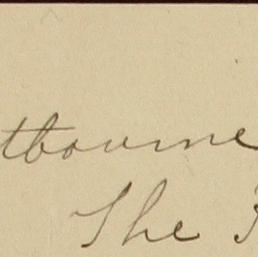 tbourne
The